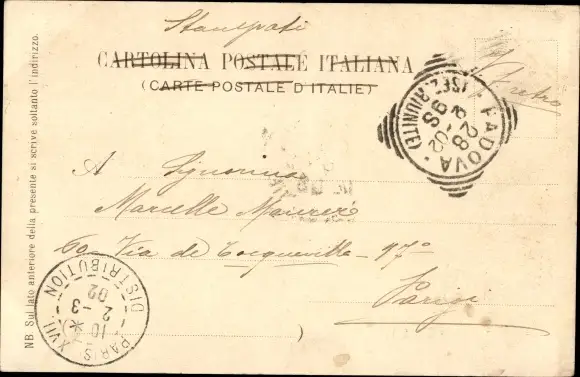 Stampati
CARTOLINA POSTALE ITALIANA
(CARTE POSTALE D'ITALIE)
retro
PADOVA
(SEZ. RIUNITE)
28
2-02
9S
A Signorina
Marcelle
60 Via de Tocqueville - 17º
Parigi
PARIS XVII
DISTRIBUTION
10
2-3
02
)
NB. Sul lato anteriore della presente si scrive soltanto l'indirizzo.